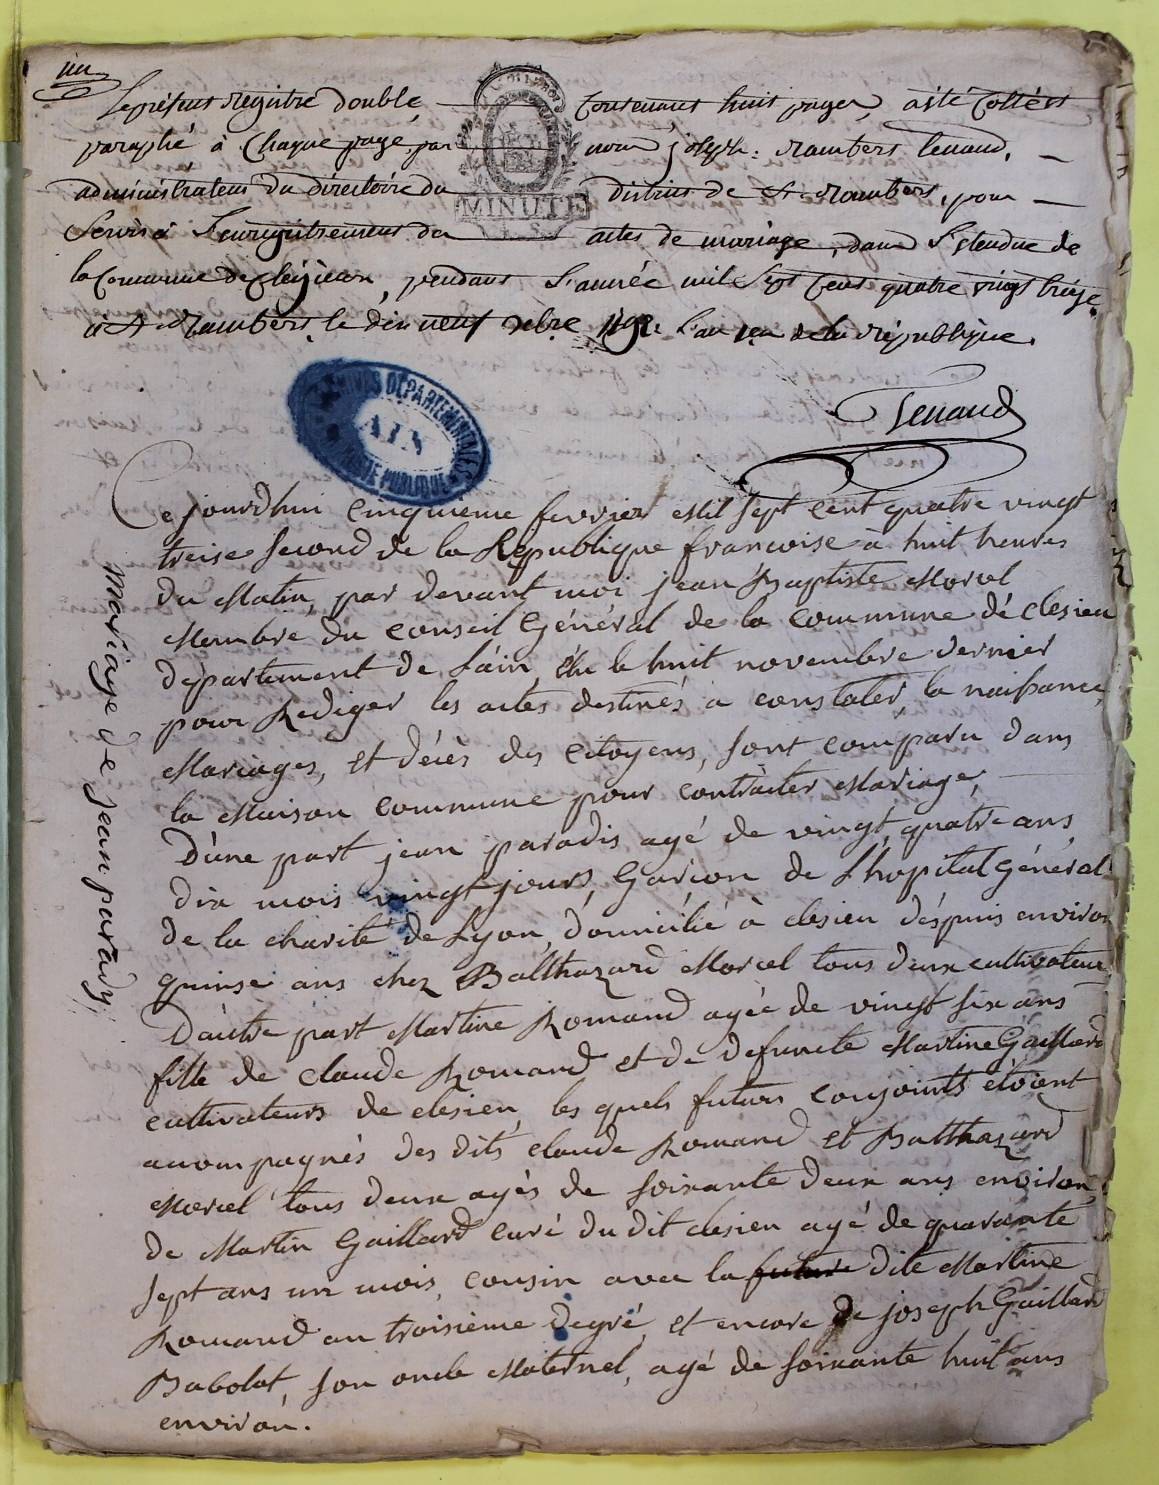 Le present registre double, contenant huit pages, a été cotté et
paraphé à chaque page, par nous joseph: rambert tenand,
administrateur du directoire du district de St rambert, pour
Servir à L'enregistrement des actes de mariage, dans L'étendue de
la Commune de Cleyzieu, pendant L'année mil Sept Cent quatre vingt treize
à St Rambert le dix neuf xbre 1792 L'an 1er de la république.
MINUTE
Tenand
ARCHIVES DÉPARTEMENTALES
AIN
Ce jourdhui cinquieme fevrier Mil sept cent quatre vingt
treise second de la Republique francoise à huit heures
Du Matin, par devant moi jean Baptiste Morel
Membre du conseil Général de la commune dé clesieu
departement de L'ain, élu le huit novembre dernier
pour Rediger les actes destinés a constater, la naissance,
Mariages, et décès des citoyens, sont comparu dans
la Maison commune pour contracter Mariage,
D'une part jean paradis agé de vingt quatre ans
dix mois vingt jours, Garcon de L'hopital Général
de la charité de Lyon, domicilié à clesieu déspuis environ
quinse ans chez Balthazard Morel tous deux cultivateurs
D'autre part Martine Romand agée de vingt six ans
fille de claude Romand et de defuncte Martine Gaillard
cultivateurs de clesieu, les quels futurs conjoints étoient
accompagnés des dits claude Romand et Balthazard
Morel tous deux agés de soixante deux ans environ,
de Martin Gaillard curé du dit clesieu agé de quarante
sept ans un mois, cousin avec la future dite Martine
Romand au troisième degré, et encore de joseph Gaillard
Babolat, son oncle Maternel, agé de soixante huit ans
environ.
Mariage de jean paradis